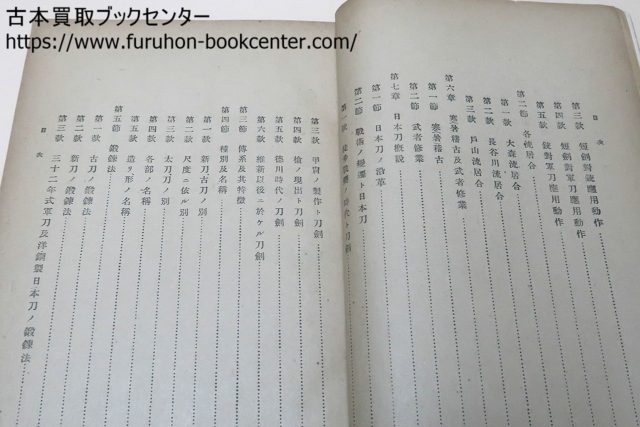 古本買取ブックセンター
https://www.furuhon-bookcenter.com/
目次
第三款 短劍對銃應用動作
第四款 短劍對軍刀應用動作
第五款 銃對軍刀應用動作
第二節 各流居合
第一款 大森流居合
第二款 長谷川流居合
第三款 戸山流居合
第六章 寒暑稽古及武者修業
第一節 寒暑稽古
第二節 武者修業
第七章 日本刀概説
第一節 日本刀ノ沿革
第二節 戰術ノ變遷ト日本刀
第三款 甲冑ノ製作ト刀劍
第四款 槍ノ現出ト刀劍
第五款 德川時代ノ刀劍
第六款 維新以後ニ於ケル刀劍
第三節 傳系及其特徴
第四節 種別及名稱
第一款 新刀古刀ノ別
第二款 尺度ニ依ル別
第三款 太刀刀ノ別
第四款 各部ノ名稱
第五款 造リ形ノ名稱
第五節 鍛錬法
第一款 古刀ノ鍛錬法
第二款 新刀ノ鍛錬法
第三款 三十二年式軍刀及洋鋼製日本刀ノ鍛錬法
目次